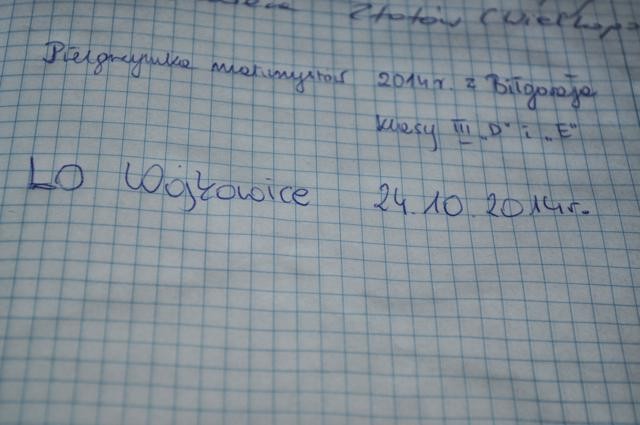 Złotów (Wielkop.
Pielgrzymka maturzystów 2014 r. z Biłgoraja
klasy III „D" i „E"
LO Wojkowice 24.10.2014r.